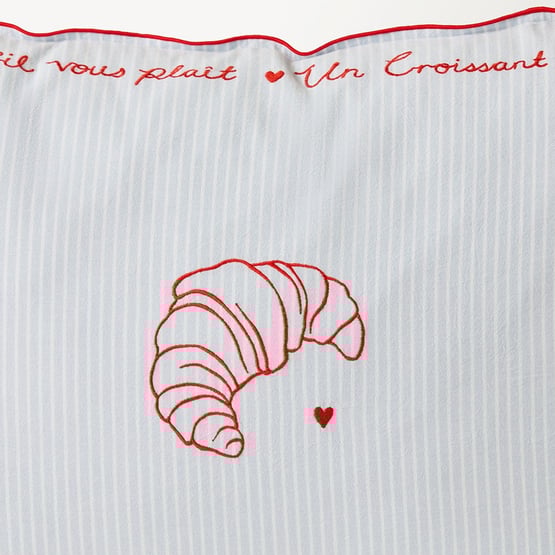 vous plaît ♥ Un Croissant